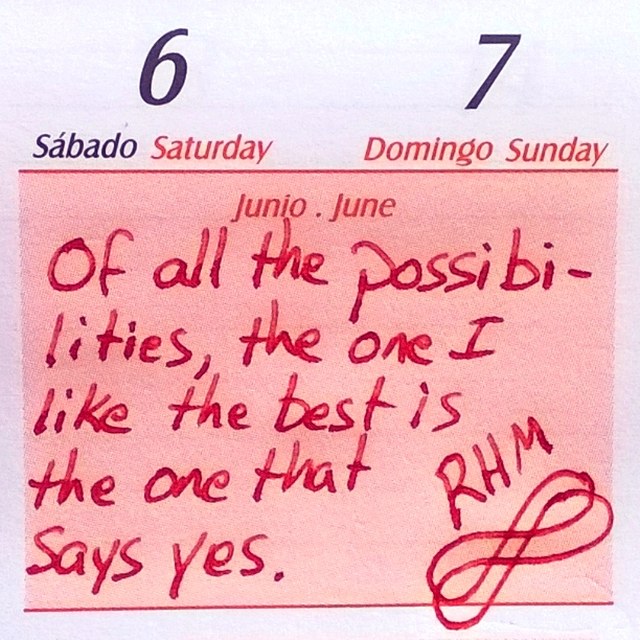 6 7
Sábado Saturday Domingo Sunday
Junio . June
Of all the possibi-
lities, the one I
like the best is
the one that
says yes.
RHM